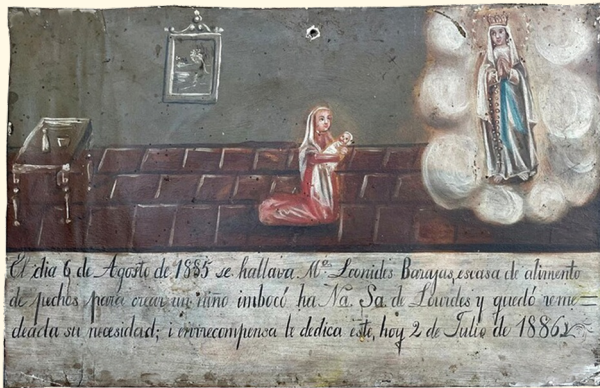 El dia 6 de Agosto de 1885 se hallava Mª Leonides Barajas, escasa de alimento
de pechos para crear un niño imbocó ha Na. Sa. de Lourdes y quedó reme=
deada su necesidad; i enrrecompensa le dedica este, hoy 2 de Julio de 1886